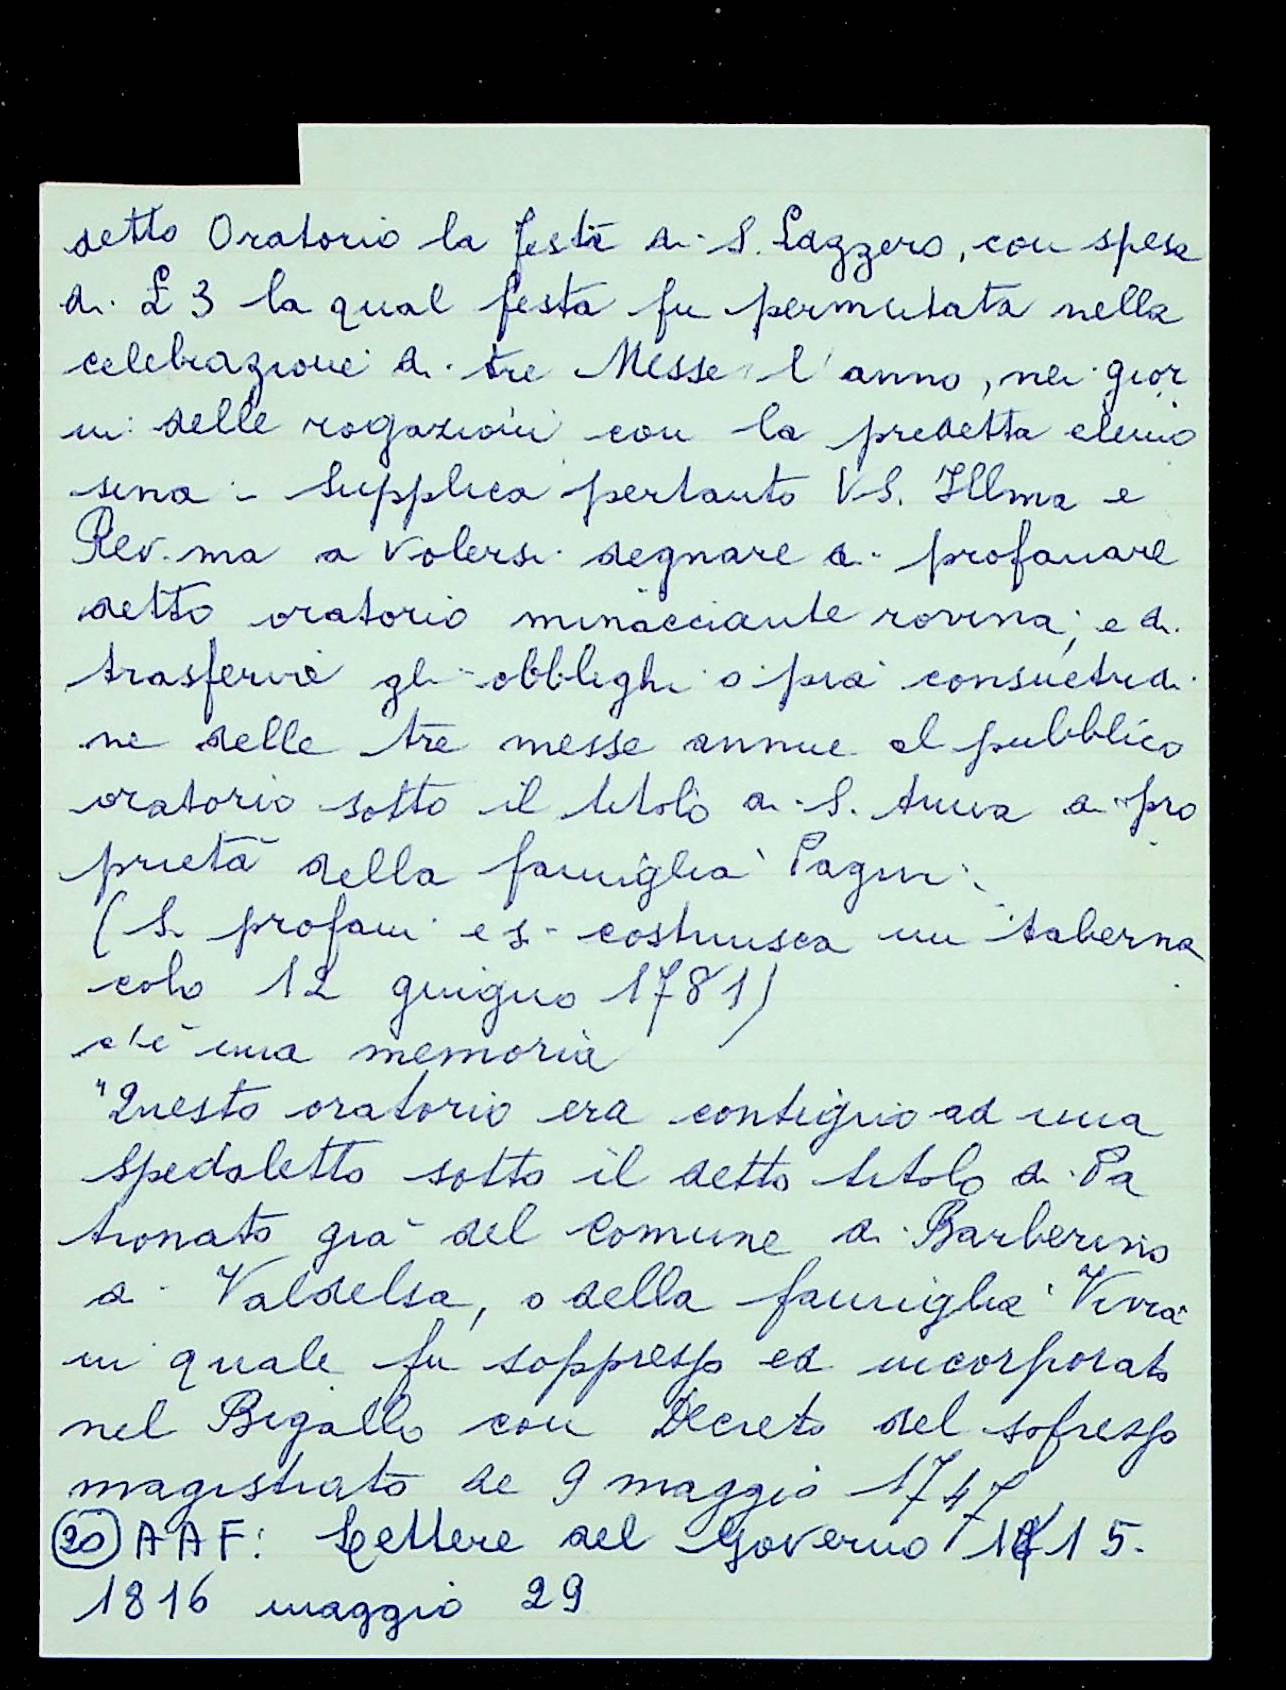 detto Oratorio la festa di S. Lazzero, con spesa
di £ 3 la qual festa fu permutata nella
celebrazione di tre Messe l'anno, nei gior
ni delle rogazioni con la predetta elemo
sina - Supplica pertanto V.S. Illma e
Rev.ma a volersi degnare di profanare
detto oratorio minacciante rovina, e di
trasferire gli obblighi o pia consuetudi
ne delle tre messe annue al pubblico
oratorio sotto il titolo di S. Anna di pro
prietà della famiglia Pagni.
(Si profani e si costruisca un taberna
colo 12 giugno 1781)
c'è una memoria
"Questo oratorio era contiguo ad una
spedaletto sotto il detto titolo di Pa
tronato già del Comune di Barberino
di Valdelsa, o della famiglia Vivia
ni quale fu soppresso ed incorporato
nel Bigallo con Decreto del sofresso
magistrato de 9 maggio 1747
20 AAF: Lettere del Governo 1815-
1816 maggio 29